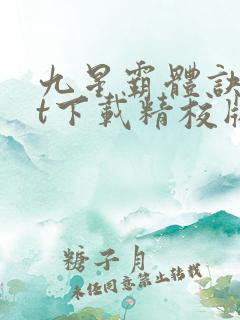 九星霸體訣
t下載精校版
糖子月
未任同意禁止转载